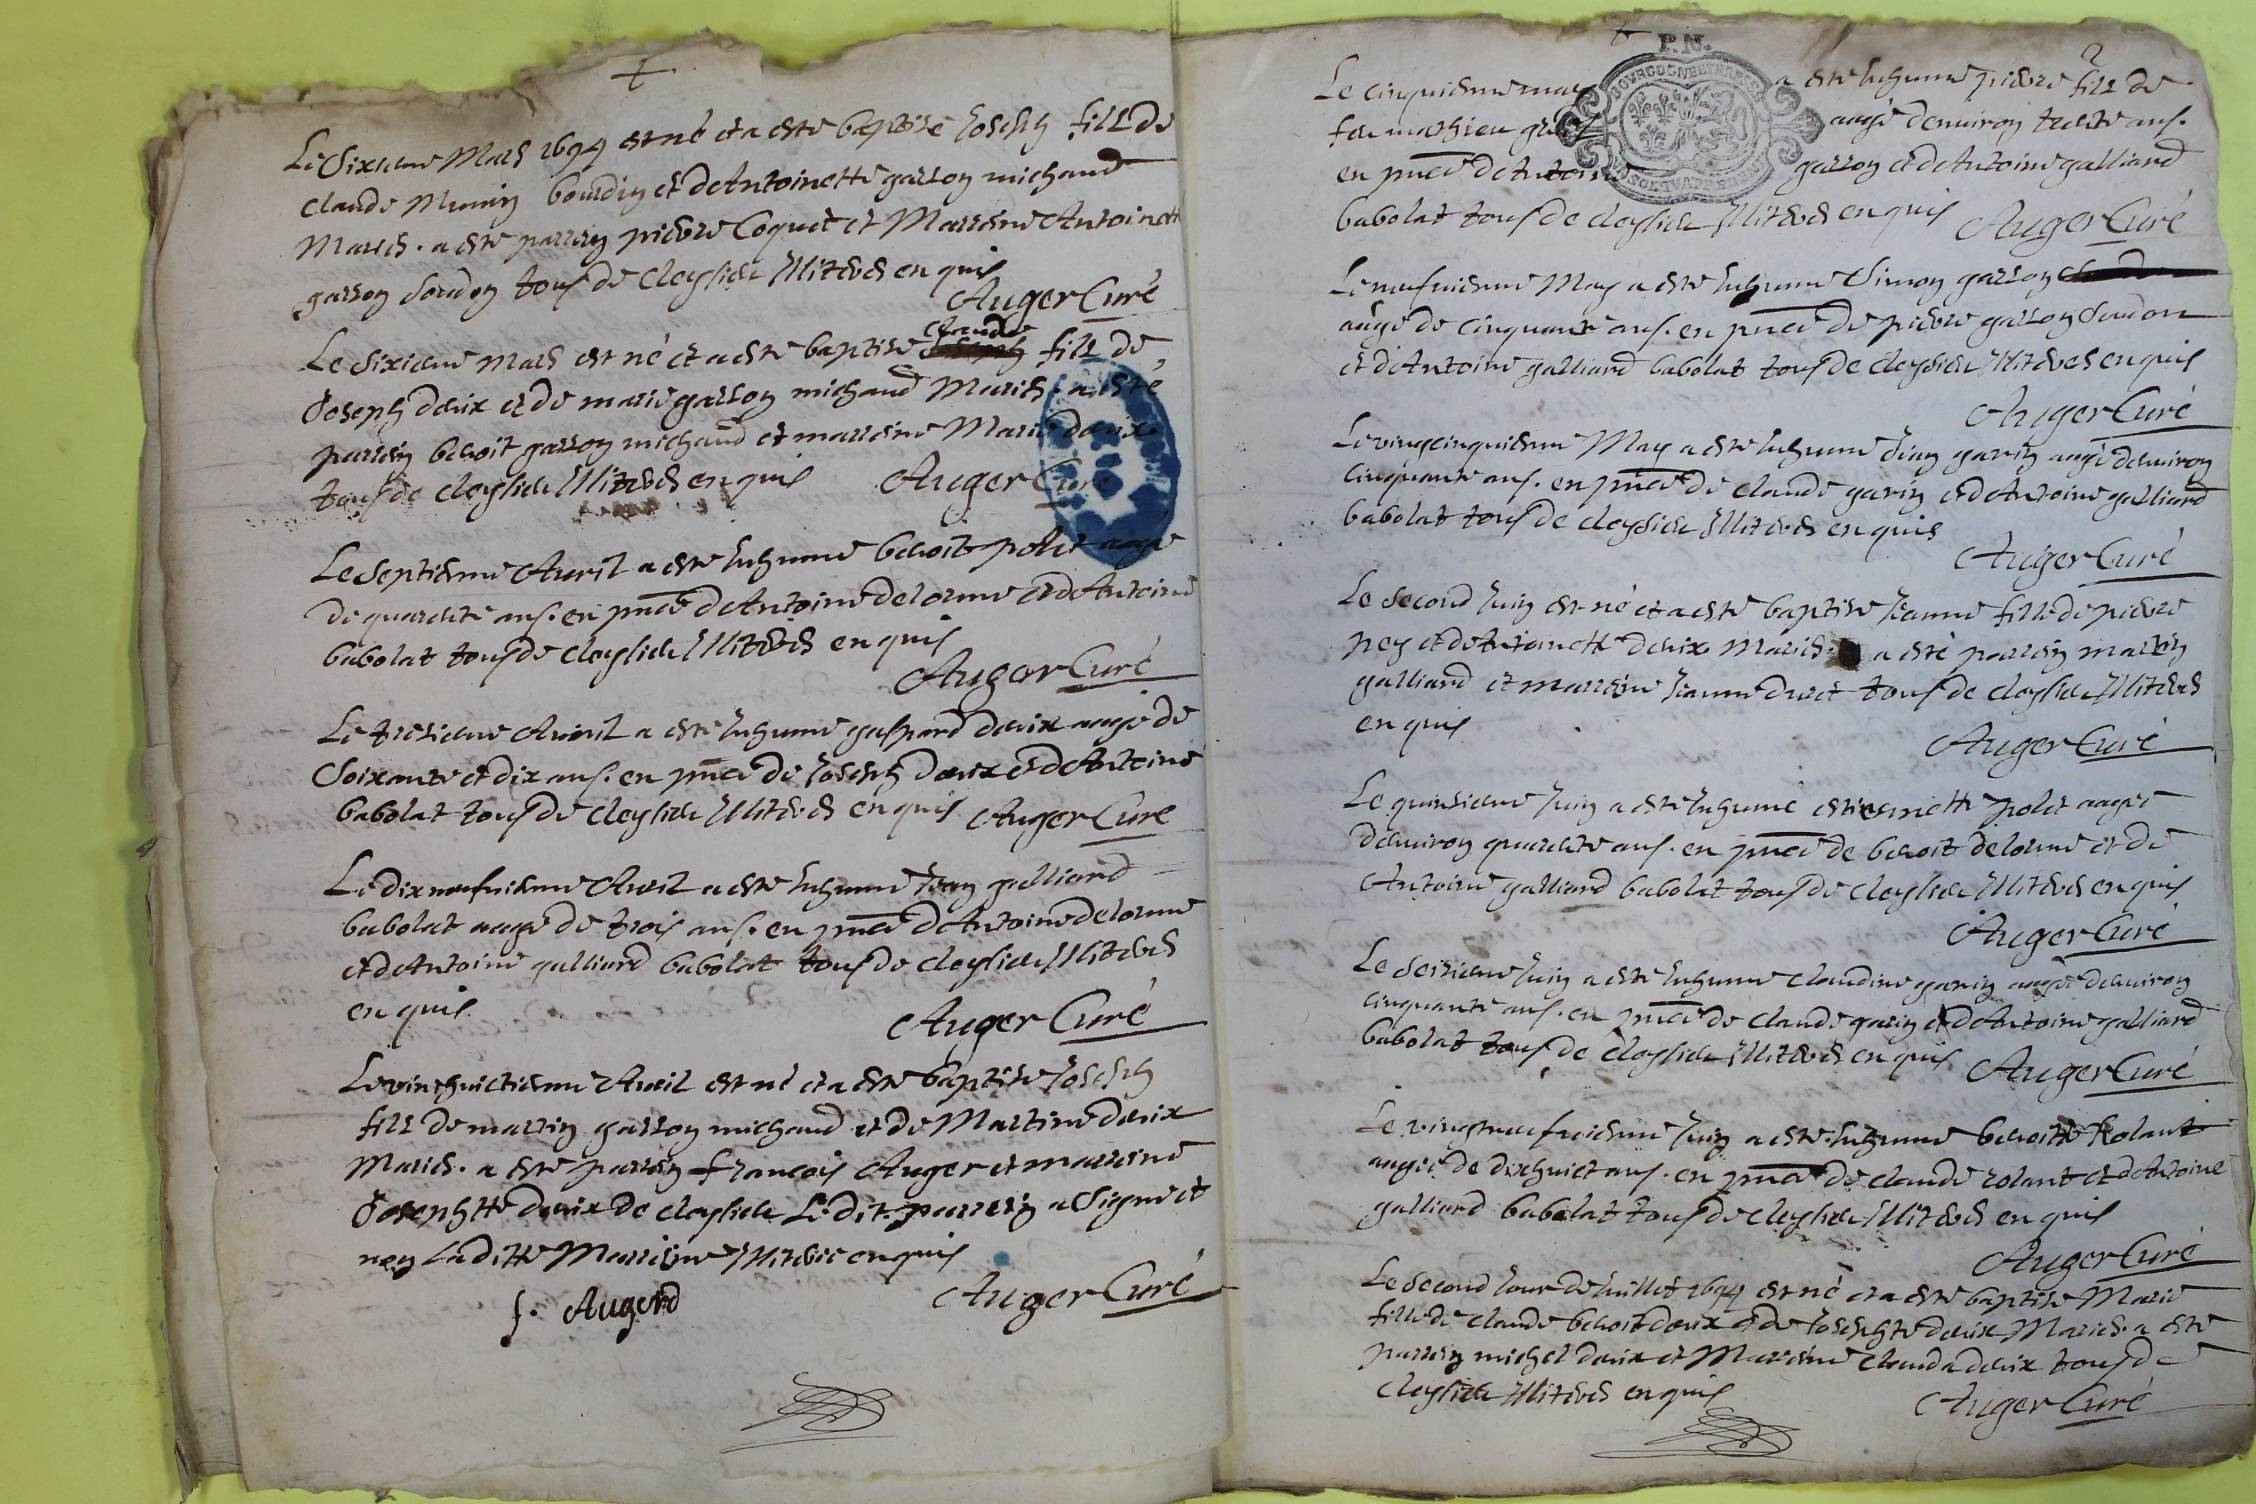 Le Sixieme Mars 1694 est né et a esté baptisé Joseph fils de
Claude Munin bourdin et de Antoinette garron michaud
Mariés. a esté parrein pierre Coquet et Marreine Antoinette
garron Soudon tous de Cleysieu Illiterés enquis
Auger Curé
Le Sixieme Mars est né et a esté baptisé Claude fils de
Joseph deuix et de marie garron michaud Mariés. a esté
parrein benoit garron michaud et marreine Marie deuix
tous de Cleysieu Illiterés enquis Auger Curé
Le Septieme Avril a esté Inhumé benoit polet aagé
de quarente ans. en pnce d'Antoine delorme et d'Antoine
babolat tous de Cleysieu Illiterés enquis
Auger Curé
Le tresieme Avril a esté Inhumé gaspard deuix aagé de
Soixante et dix ans. en pnce de Joseph deuix et d'Antoine
babolat tous de Cleysieu Illiterés enquis Auger Curé
Le dixneufvieme Avril a esté Inhumé Jean galliard
babolat aagé de trois ans. en pnce d'Antoine delorme
et d'Antoine galliard babolat tous de Cleysieu Illiterés
enquis.
Auger Curé
Le vinthuictieme Avril est né et a esté baptisé Joseph
fils de martin garron michaud et de Martine deuix
Mariés. a esté parrein francois Auger et marreine
Josephtte deuix de Cleysieu Ledit parrein a Signé et
non Laditte Marreine Illiteree enquis
f. Augerd
Auger Curé
P.N.
2
Le cinquieme may a esté Inhumé pierre fils de
feu mathieu aagé d'environ trente ans.
en pnce de Antoine garron et de Antoine galliard
babolat tous de Cleysieu Illiterés enquis
Auger Curé
Le neufvieme May a esté Inhumé Simon garron
aagé de cinquante ans. en pnce de pierre garron Soudon
et d'Antoine galliard babolat tous de Cleysieu Illiterés enquis
Auger Curé
Le vingcinquieme May a esté Inhumé Jean garin aagé d'environ
cinquante ans. en pnce de Claude garin et d'Antoine galliard
babolat tous de Cleysieu Illiterés enquis
Auger Curé
Le Second Juin est né et a esté baptisé Jeanne fille de pierre
ney et de Antoinette deuix Mariés. a esté parrein martin
galliard et marreine Jeanne tous de Cleysieu Illiterés
enquis
Auger Curé
Le quinsieme Juin a esté Inhumé estiennette polet aagée
d'environ quarente ans. en pnce de benoit delorme et de
Antoine galliard babolat tous de Cleysieu Illiterés enquis
Auger Curé
Le Seisieme Juin a esté Inhumé Claudine garin aagée d'environ
cinquante ans. en pnce de Claude garin et d'Antoine galliard
babolat tous de Cleysieu Illiterés enquis
Auger Curé
Le vingtneufvieme Juin a esté Inhumé benoitte Rolant
aagée de dixhuict ans. en pnce de Claude rolant et d'Antoine
galliard babolat tous de Cleysieu Illiterés enquis
Auger Curé
Le Second Jour de Juillet 1694 est né et a esté baptisé Marie
fille de Claude benoit deuix et de Josephte deuix Mariés. a esté
parrein michel deuix et Marreine Clauda deuix tous de
Cleysieu Illiterés enquis
Auger Curé